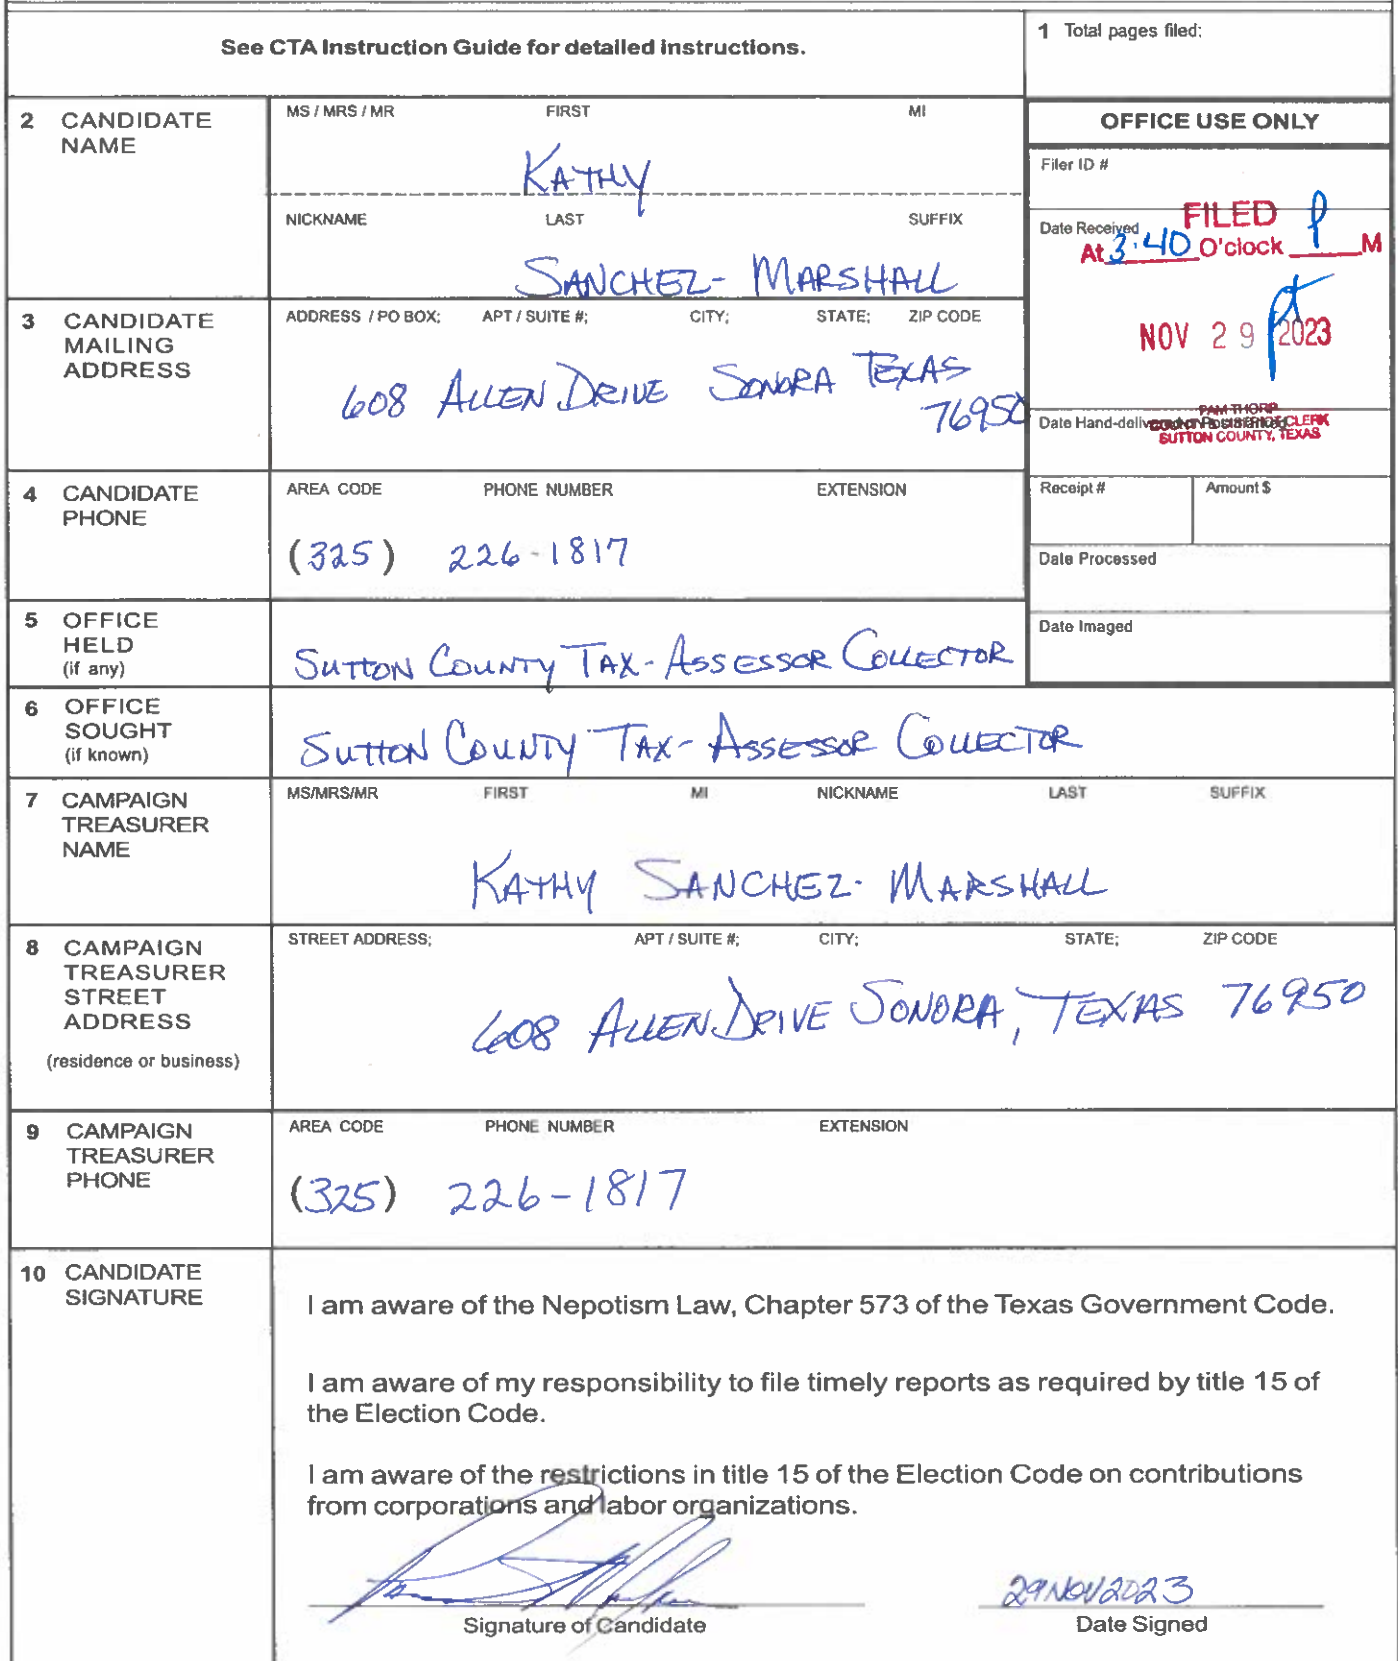 See CTA Instruction Guide for detailed instructions.
1 Total pages filed:
2 CANDIDATE NAME
MS / MRS / MR FIRST MI
KATHY
NICKNAME LAST SUFFIX
SANCHEZ- MARSHALL
OFFICE USE ONLY
Filer ID #
Date Received
FILED
At 3:40 O'clock P M
NOV 29 2023
PAM THORP
SUTTON COUNTY, TEXAS
Date Hand-delivered or Postmarked
Receipt # Amount $
Date Processed
Date Imaged
3 CANDIDATE MAILING ADDRESS
ADDRESS / PO BOX; APT / SUITE #; CITY; STATE; ZIP CODE
608 ALLEN DRIVE SONORA TEXAS
76950
4 CANDIDATE PHONE
AREA CODE PHONE NUMBER EXTENSION
(325) 226-1817
5 OFFICE HELD (if any)
SUTTON COUNTY TAX-ASSESSOR COLLECTOR
6 OFFICE SOUGHT (if known)
SUTTON COUNTY TAX-ASSESSOR COLLECTOR
7 CAMPAIGN TREASURER NAME
MS/MRS/MR FIRST MI NICKNAME LAST SUFFIX
KATHY SANCHEZ- MARSHALL
8 CAMPAIGN TREASURER STREET ADDRESS
(residence or business)
STREET ADDRESS; APT / SUITE #; CITY; STATE; ZIP CODE
608 ALLEN DRIVE SONORA, TEXAS 76950
9 CAMPAIGN TREASURER PHONE
AREA CODE PHONE NUMBER EXTENSION
(325) 226-1817
10 CANDIDATE SIGNATURE
I am aware of the Nepotism Law, Chapter 573 of the Texas Government Code.
I am aware of my responsibility to file timely reports as required by title 15 of
the Election Code.
I am aware of the restrictions in title 15 of the Election Code on contributions
from corporations and labor organizations.
29NOV2023
Signature of Candidate Date Signed